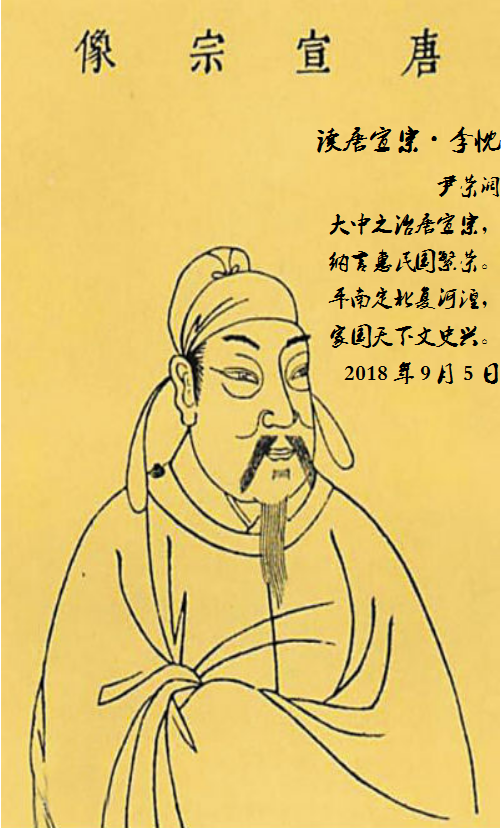 唐宣宗像
读唐宣宗·李忱
尹荣润
大中之治唐宣宗，
纳言惠民国繁荣。
平南定北复河湟，
家国天下文史兴。
2018年9月5日